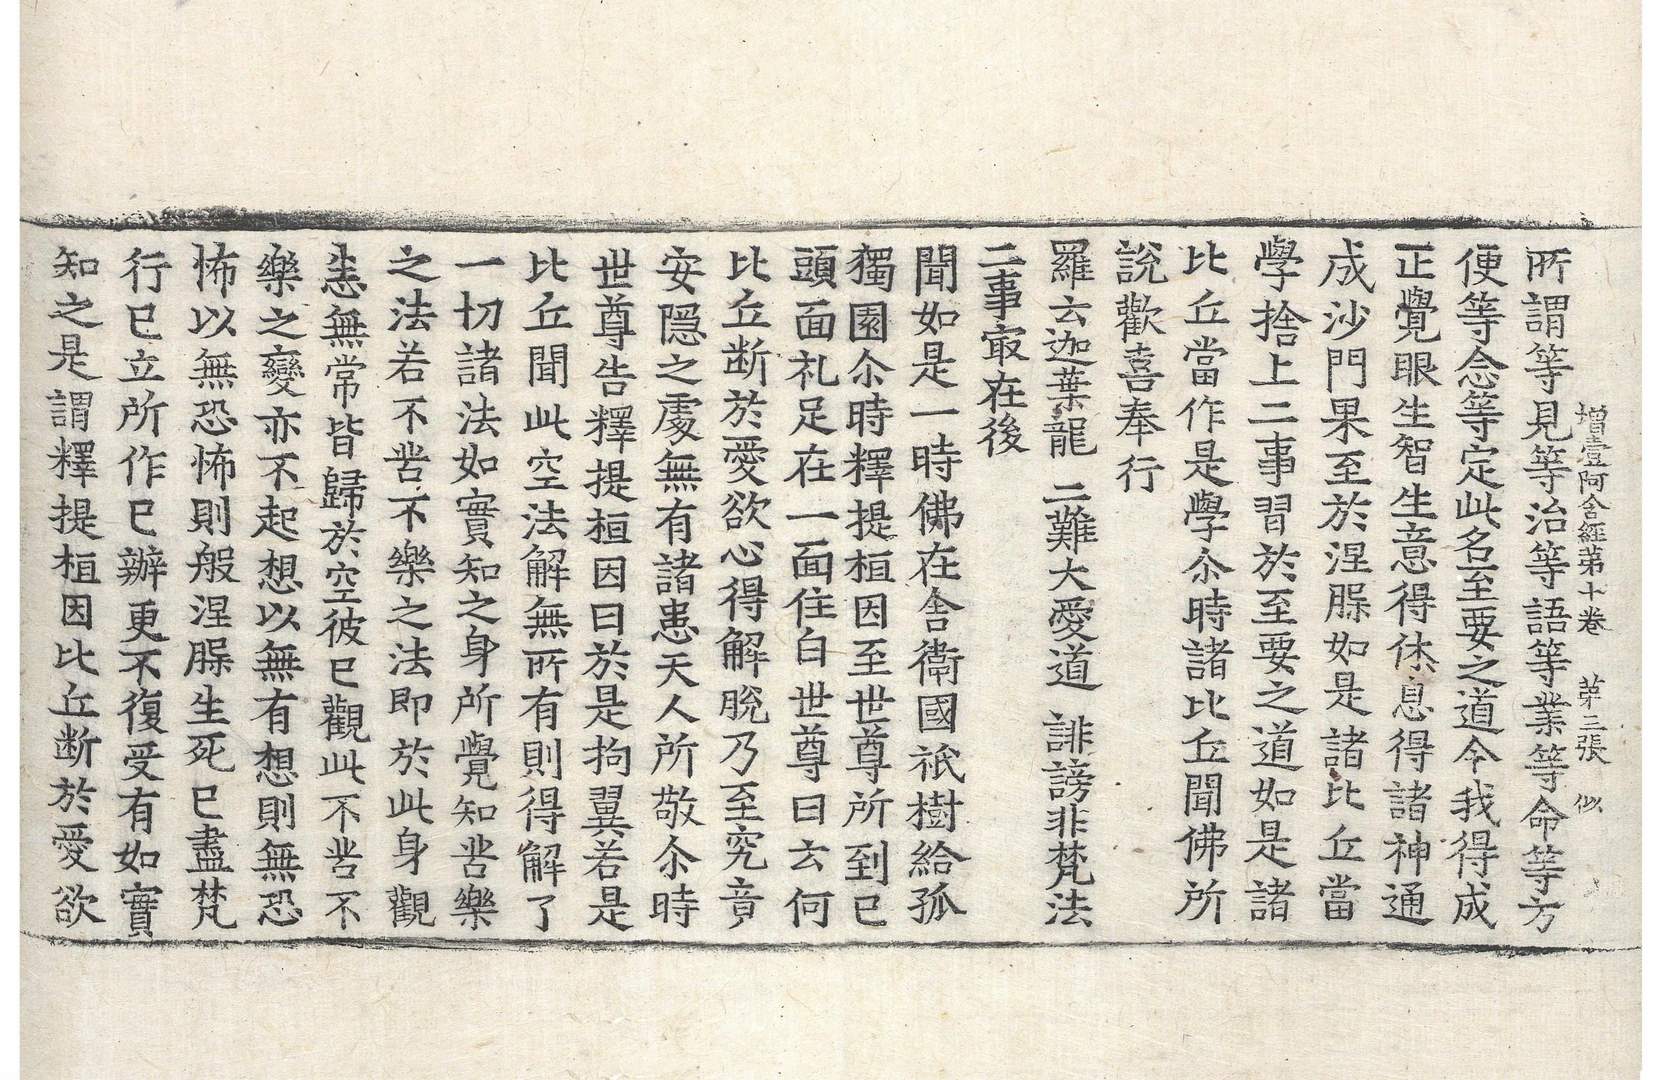 增壹阿含經第十卷　第三張　似
所謂等見等治等語等業等命等方
便等念等定此名至要之道今我得成
正覺眼生智生意得休息得諸神通
成沙門果至於涅槃如是諸比丘當
學捨上二事習於至要之道如是諸
比丘當作是學尒時諸比丘聞佛所
說歡喜奉行
羅云迦葉龍　二難大愛道　誹謗非梵法
二事㝡在後
聞如是一時佛在舍衛國祇樹給孤
獨園尒時釋提桓因至世尊所到已
頭面礼足在一面住白世尊曰云何
比丘断於愛欲心得解脫乃至究竟
安隱之處無有諸患天人所敬尒時
世尊告釋提桓因曰於是拘翼若是
比丘聞此空法解無所有則得解了
一切諸法如實知之身所覺知苦樂
之法若不苦不樂之法即於此身觀
悉無常皆歸於空彼已觀此不苦不
樂之變亦不起想以無有想則無恐
怖以無恐怖則般涅槃生死已盡梵
行已立所作已辦更不復受有如實
知之是謂釋提桓因比丘断於愛欲